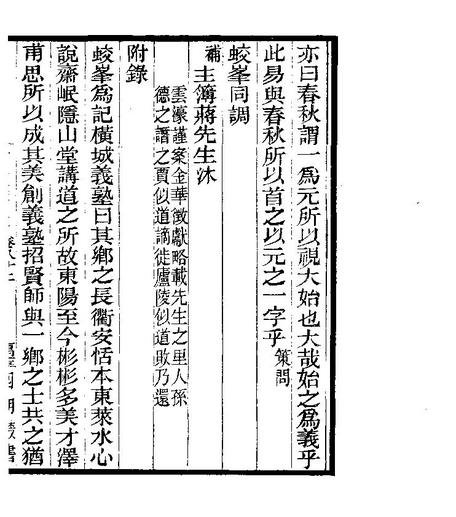 亦曰春秋謂一爲元所以視大始也大哉始之爲義乎
此易與春秋所以首之以元之一字乎策問
蛟峯同調
補主簿蔣先生沐
雲濠謹案金華徵獻略載先生之里人孫
德之譖之賈似道謫徙廬陵似道敗乃還
附錄
蛟峯爲記橫城義塾曰其鄉之長衢安恬本東萊水心
說齋岷隱山堂講道之所故東陽至今彬彬多美才澤
甫思所以成其美創義塾招賢師與一鄉之士共之猶